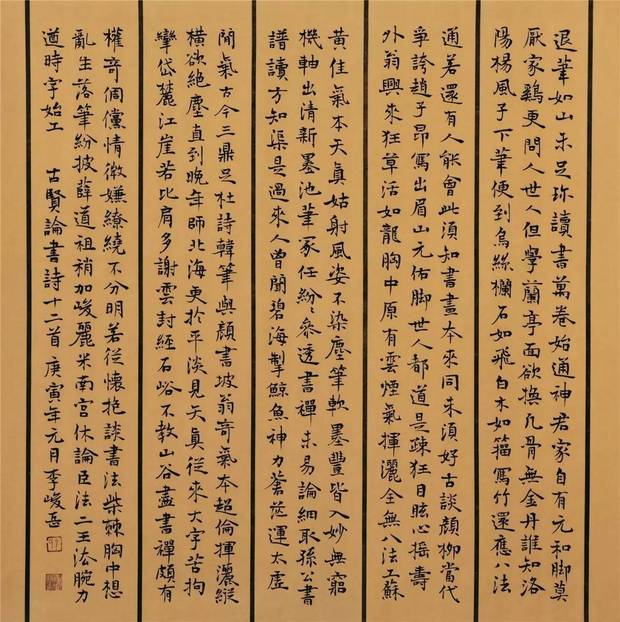 退筆如山未足珍讀書萬卷始通神君家自有元和脚莫
厭家鷄更問人世人但學蘭亭面欲換凡骨無金丹誰知洛
陽楊風子下筆便到烏絲欄石如飛白木如籀寫竹還應八法
通若還有人能會此須知書畫本來同未須好古談顏柳當代
爭誇趙子昂寫出眉山元佑脚世人都道是疎狂目眩心搖壽
外翁興來狂草活如龍胸中原有雲煙氣揮灑全無八法工蘇
黃佳氣本天真姑射風姿不染塵筆軟墨豐皆入妙無窮
機軸出清新墨池筆冢任紛〻參透書禪未易論細取孫公書
譜讀方知渠是過來人曾聞碧海掣鯨魚神力蒼茫運太虛
間氣古今三鼎足杜詩韓筆與顏書坡翁奇氣本超倫揮灑縱
橫欲絕塵直到晚年師北海更於平淡見天真從來大字苦拘
攣岱麓江崖若比肩多謝雲封經石峪不教山谷盡書禪頗有
權奇倜儻情微嫌繚繞不分明若從懷抱談書法柴棘胸中想
亂生落筆紛披薛道祖稍加峻麗米南宮休論臣法二王法腕力
遒時字始工 古賢論書詩十二首 庚寅年元月李峻岳